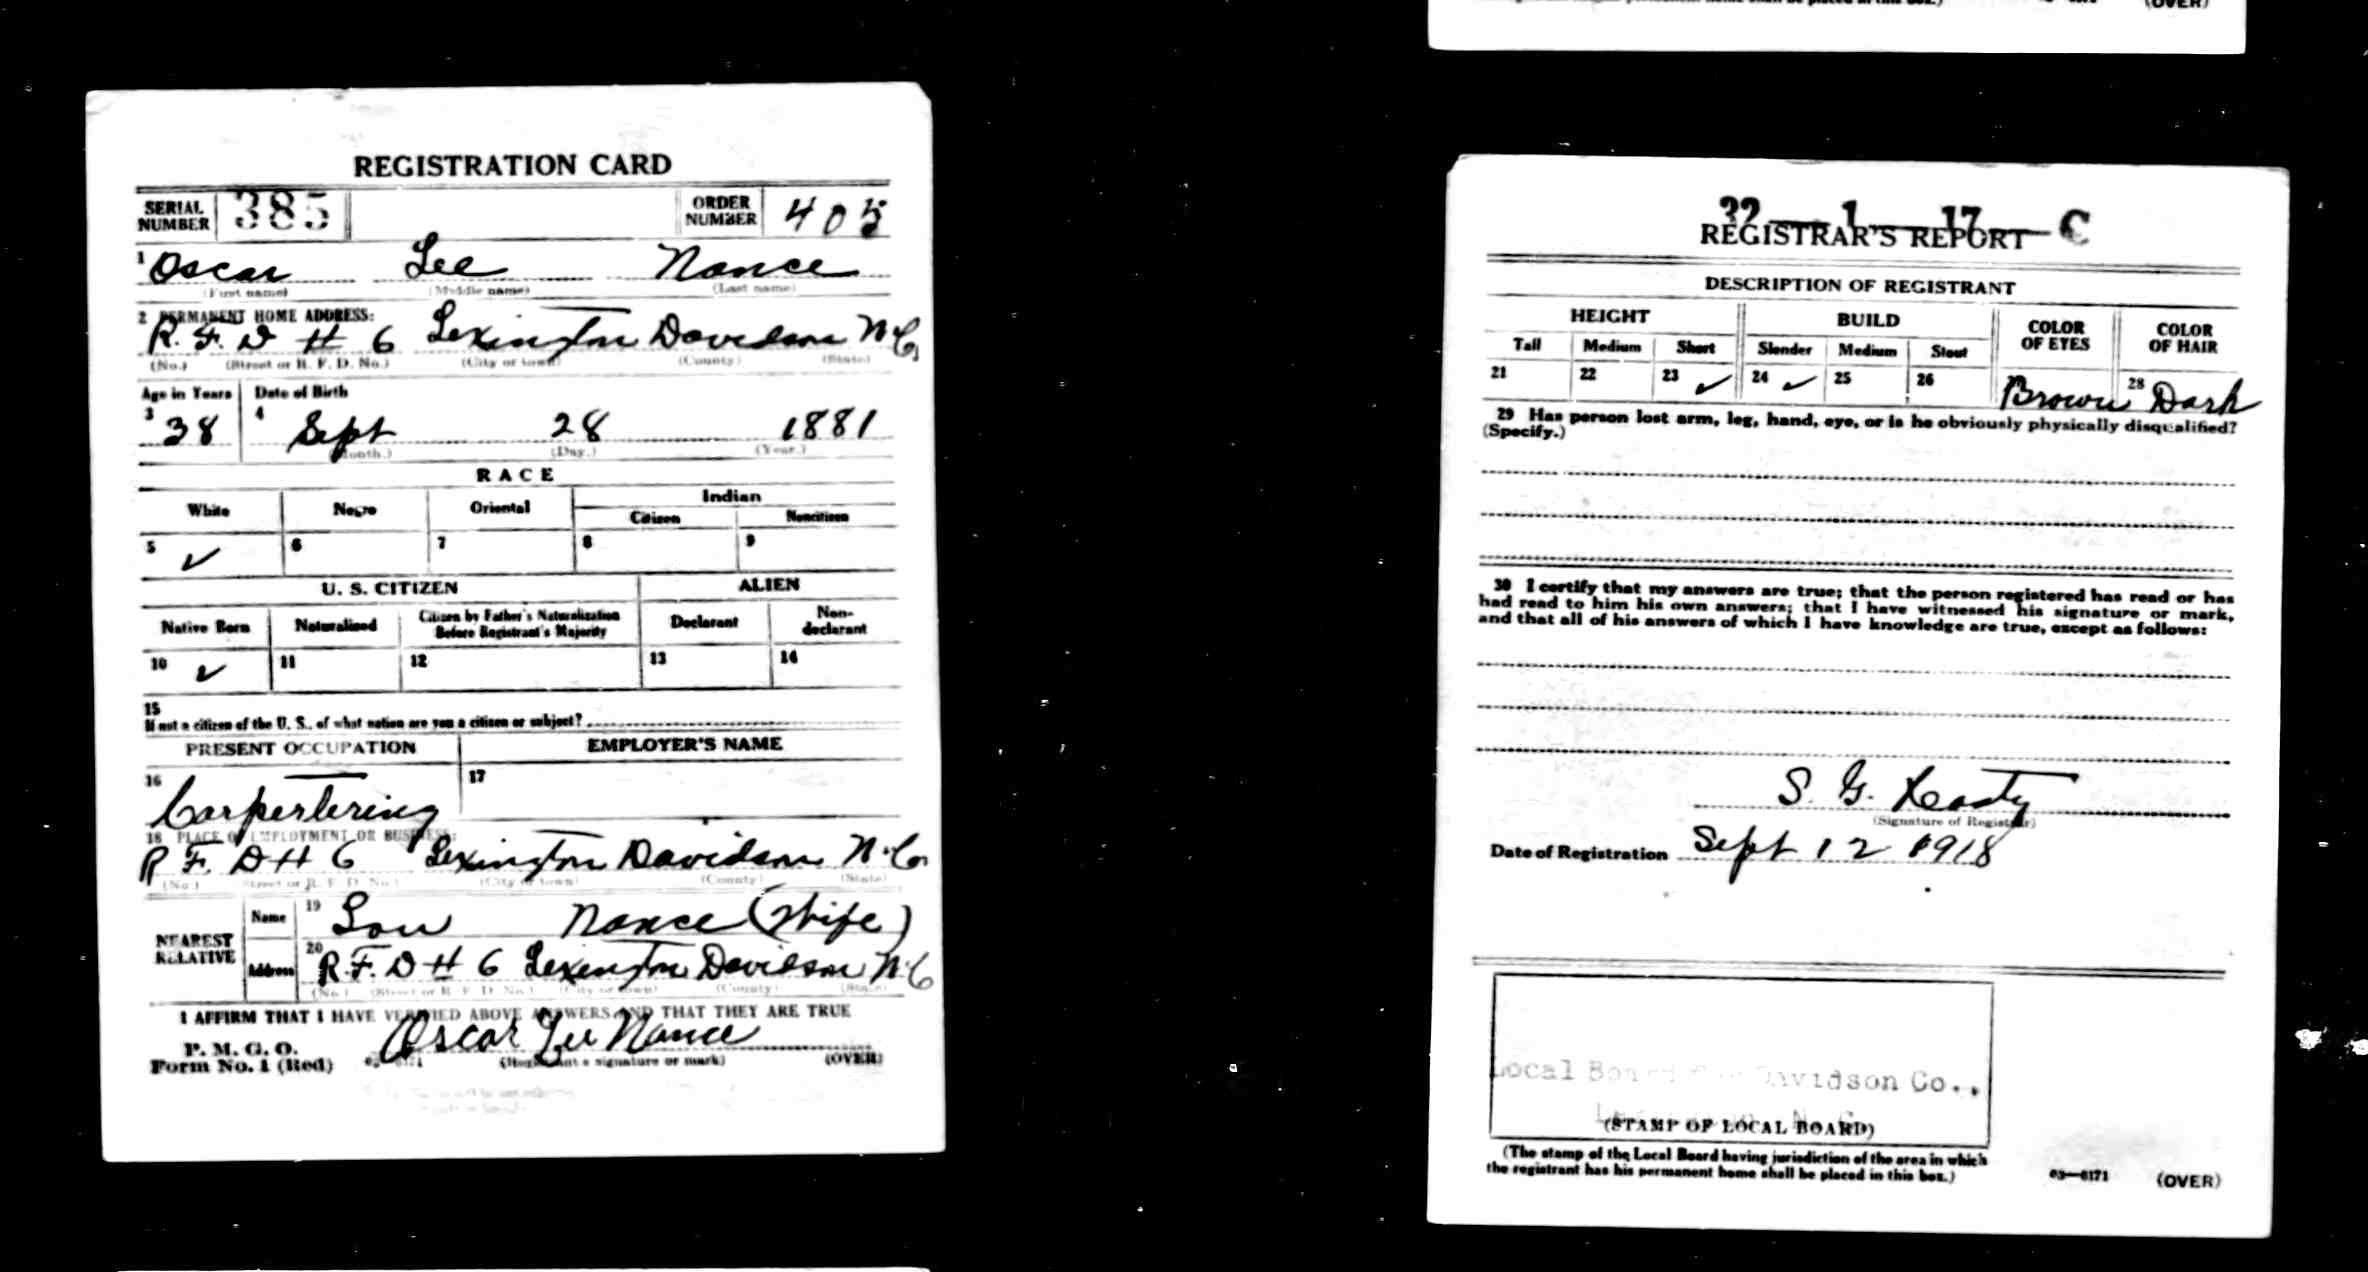 home shall be placed in this box.)
(OVER)
REGISTRATION CARD
SERIAL NUMBER 385 ORDER NUMBER 405
1 Oscar Lee Nance
(First name) (Middle name) (Last name)
2 PERMANENT HOME ADDRESS:
R. F. D # 6 Lexington Davidson N C
(No.) (Street or R. F. D. No.) (City or town) (County) (State)
Age in Years Date of Birth
3 38 4 Sept 28 1881
(Month.) (Day.) (Year.)
RACE
White Negro Oriental Indian
Citizen Noncitizen
5 ✓ 6 7 8 9
U. S. CITIZEN ALIEN
Native Born Naturalized Citizen by Father's Naturalization Before Registrant's Majority Declarant Non-declarant
10 ✓ 11 12 13 14
15
If not a citizen of the U. S., of what nation are you a citizen or subject?
PRESENT OCCUPATION EMPLOYER'S NAME
16 Carpentering 17
18 PLACE OF EMPLOYMENT OR BUSINESS:
R F. D # 6 Lexington Davidson N. C.
(No.) (Street or R. F. D. No.) (City or town) (County) (State)
NEAREST RELATIVE
Name 19 Lou Nance (Wife)
Address 20 R. F. D # 6 Lexington Davidson N C
(No.) (Street or R. F. D. No.) (City or town) (County) (State)
I AFFIRM THAT I HAVE VERIFIED ABOVE ANSWERS AND THAT THEY ARE TRUE
P. M. G. O.
Form No. 1 (Red) Oscar Lee Nance
(Registrant's signature or mark) (OVER)
32—1—17—C
REGISTRAR'S REPORT
DESCRIPTION OF REGISTRANT
HEIGHT BUILD COLOR OF EYES COLOR OF HAIR
Tall Medium Short Slender Medium Stout
21 22 23 ✓ 24 ✓ 25 26 Brown 28 Dark
29 Has person lost arm, leg, hand, eye, or is he obviously physically disqualified?
(Specify.)
30 I certify that my answers are true; that the person registered has read or has
had read to him his own answers; that I have witnessed his signature or mark,
and that all of his answers of which I have knowledge are true, except as follows:
S. G.
(Signature of Registrar)
Date of Registration Sept 12 1918
Local Board for Davidson Co.,
N. C.
(STAMP OF LOCAL BOARD)
(The stamp of the Local Board having jurisdiction of the area in which
the registrant has his permanent home shall be placed in this box.)
03—6171 (OVER)